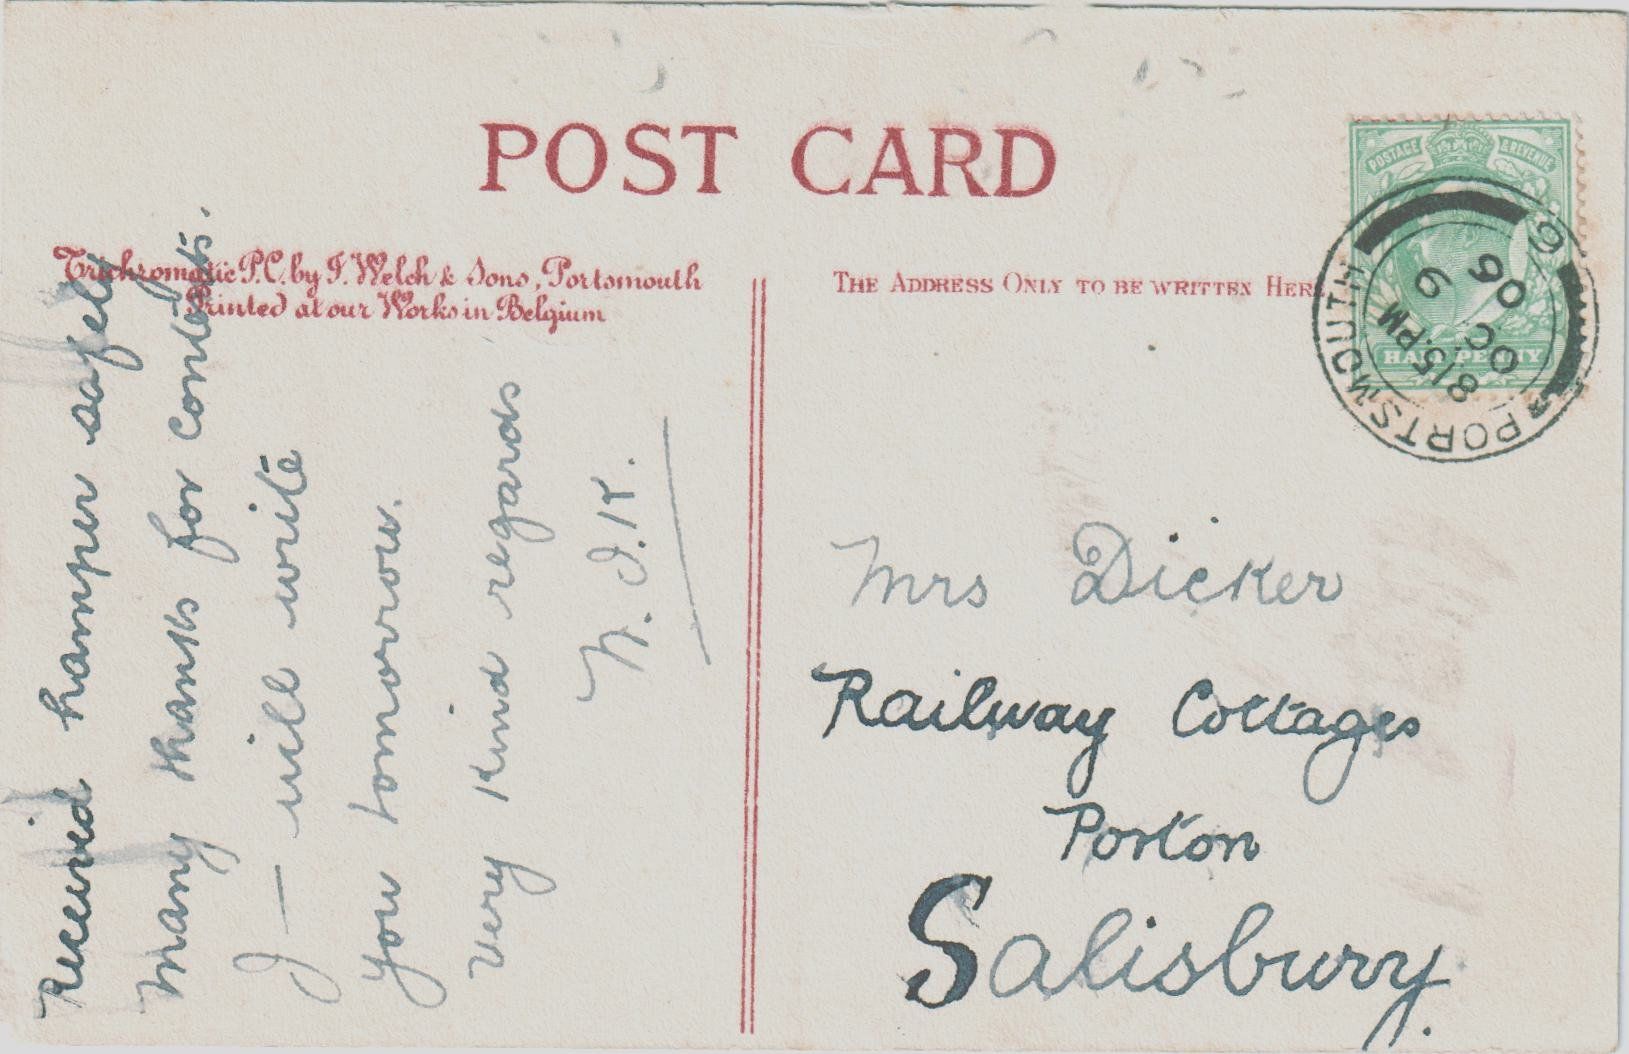 POST CARD
Trichromatic P.C. by J. Welch & Sons, Portsmouth
Printed at our Works in Belgium
THE ADDRESS ONLY TO BE WRITTEN HERE
POSTAGE & REVENUE
HALF PENNY
PORTSMOUTH
8 15.PM
OC 9
06
6
Received hamper safely
many thanks for contents.
I will write
you tomorrow.
Very kind regards
Mrs Dicker
Railway Cottages
Porton
Salisbury.